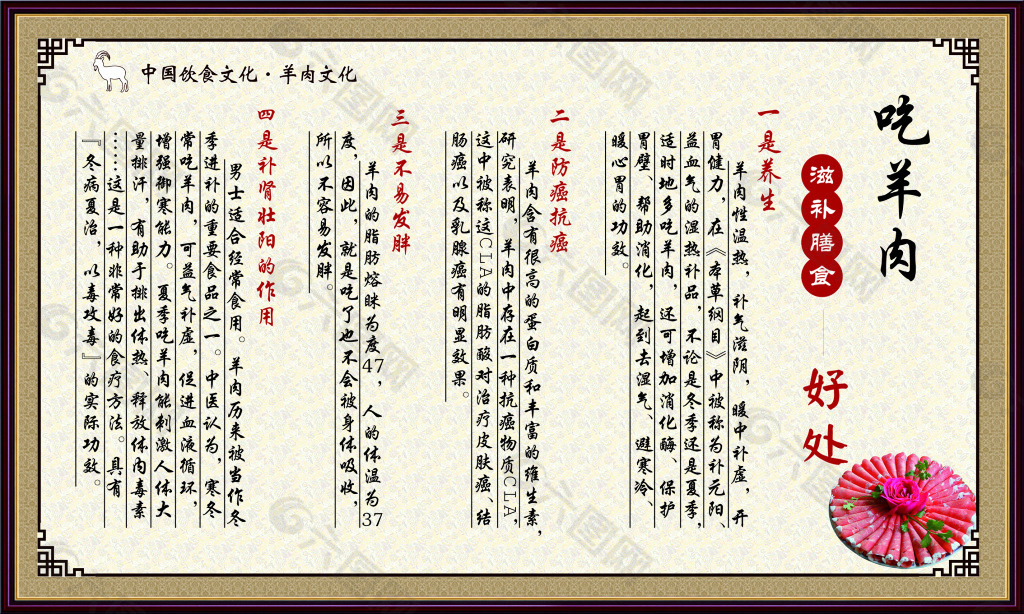 中国饮食文化·羊肉文化
吃羊肉
滋补膳食
好处
一是养生
羊肉性温热，补气滋阴，暖中补虚，开
胃健力，在《本草纲目》中被称为补元阳、
益血气的湿热补品，不论是冬季还是夏季，
适时地多吃羊肉，还可增加消化酶、保护
胃壁、帮助消化，起到去湿气、避寒冷、
暖心胃的功效。
二是防癌抗癌
羊肉含有很高的蛋白质和丰富的维生素，
研究表明，羊肉中存在一种抗癌物质CLA，
这中被称这CLA的脂肪酸对治疗皮肤癌、结
肠癌以及乳腺癌有明显效果。
三是不易发胖
羊肉的脂肪熔眯为度47，人的体温为37
度，因此，就是吃了也不会被身体吸收，
所以不容易发胖。
四是补肾壮阳的作用
男士适合经常食用。羊肉历来被当作冬
季进补的重要食品之一。中医认为，寒冬
常吃羊肉，可益气补虚，促进血液循环，
增强御寒能力。夏季吃羊肉能刺激人体大
量排汗，有助于排出体热、释放体内毒素
……这是一种非常好的食疗方法。具有
『冬病夏治，以毒攻毒』的实际功效。
六图网